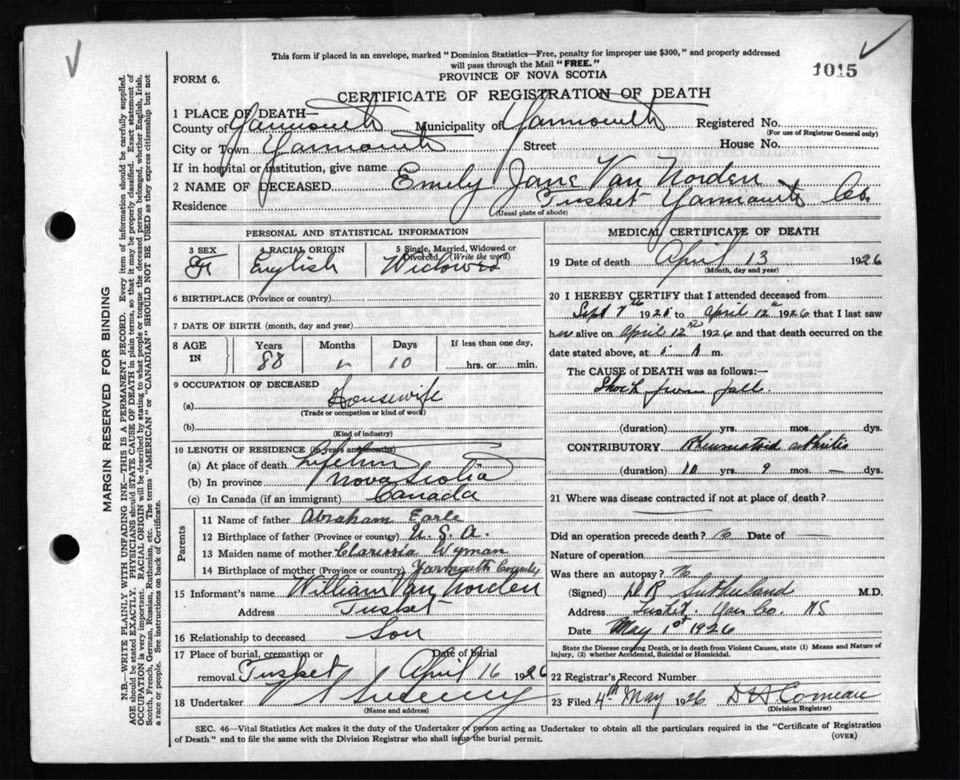 This form if placed in an envelope, marked "Dominion Statistics—Free, penalty for improper use $300," and properly addressed
will pass through the Mail "FREE."
1015
FORM 6.
PROVINCE OF NOVA SCOTIA
CERTIFICATE OF REGISTRATION OF DEATH
1 PLACE OF DEATH—
County of Yarmouth Municipality of Yarmouth Registered No.
(For use of Registrar General only)
City or Town Yarmouth Street House No.
If in hospital or institution, give name
2 NAME OF DECEASED Emily Jane Van Norden
Residence Tusket Yarmouth Co.
(Usual place of abode)
PERSONAL AND STATISTICAL INFORMATION
3 SEX
4 RACIAL ORIGIN English
5 Single, Married, Widowed or
Divorced, (Write the word)
Widowed
6 BIRTHPLACE (Province or country)
7 DATE OF BIRTH (month, day and year)
8 AGE IN
Years Months Days If less than one day,
88 10 hrs. or min.
9 OCCUPATION OF DECEASED
(a) Housewife
(Trade or occupation or kind of work)
(b)
(Kind of industry)
10 LENGTH OF RESIDENCE (in years and months)
(a) At place of death Lifetime
(b) In province Nova Scotia
(c) In Canada (if an immigrant) Canada
Parents
11 Name of father Abraham Earle
12 Birthplace of father (Province or county) U.S.A.
13 Maiden name of mother Clarissa Wyman
14 Birthplace of mother (Province or county) Yarmouth County
15 Informant's name William Van Norden
Address Tusket
16 Relationship to deceased Son
17 Place of burial, cremation or removal Tusket
Date of burial April 16 1926
18 Undertaker V Sweeny
(Name and address)
MEDICAL CERTIFICATE OF DEATH
19 Date of death April 13 1926
(Month, day and year)
20 I HEREBY CERTIFY that I attended deceased from
Sept 7th 192 to April 12th 1926 that I last saw
her alive on April 12 1926 and that death occurred on the
date stated above, at 1 A m.
The CAUSE of DEATH was as follows:—
Shock from fall
(duration) yrs. mos. dys.
CONTRIBUTORY Rheumatoid arthritis
(duration) 10 yrs. 9 mos. — dys.
21 Where was disease contracted if not at place of death?
Did an operation precede death? No Date of —
Nature of operation
Was there an autopsy? No
(Signed) Sutherland M.D.
Address Tusket Yar Co. NS
Date May 1st 1926
State the Disease causing Death, or in death from Violent Causes, state (1) Means and Nature of
Injury, (2) whether Accidental, Suicidal or Homicidal.
22 Registrar's Record Number
23 Filed 4th May 1926 Comeau
(Division Registrar)
SEC. 46—Vital Statistics Act makes it the duty of the Undertaker or person acting as Undertaker to obtain all the particulars required in the "Certificate of Registration
of Death" and to file the same with the Division Registrar who shall issue the burial permit.
(OVER)
MARGIN RESERVED FOR BINDING
N.B.—WRITE PLAINLY WITH UNFADING INK—THIS IS A PERMANENT RECORD. Every item of information should be carefully supplied.
AGE should be stated EXACTLY. PHYSICIANS should STATE CAUSE OF DEATH in plain terms, so that it may be properly classified. Exact statement of
OCCUPATION is very important. RACIAL ORIGIN will be described by stating to what people or tongue the deceased person belonged, whether English, Irish,
Scotch, French, German, Russian, Ruthenian, etc. The terms "AMERICAN" or "CANADIAN" SHOULD NOT BE USED as they express citizenship but not
a race or people. See instructions on back of Certificate.